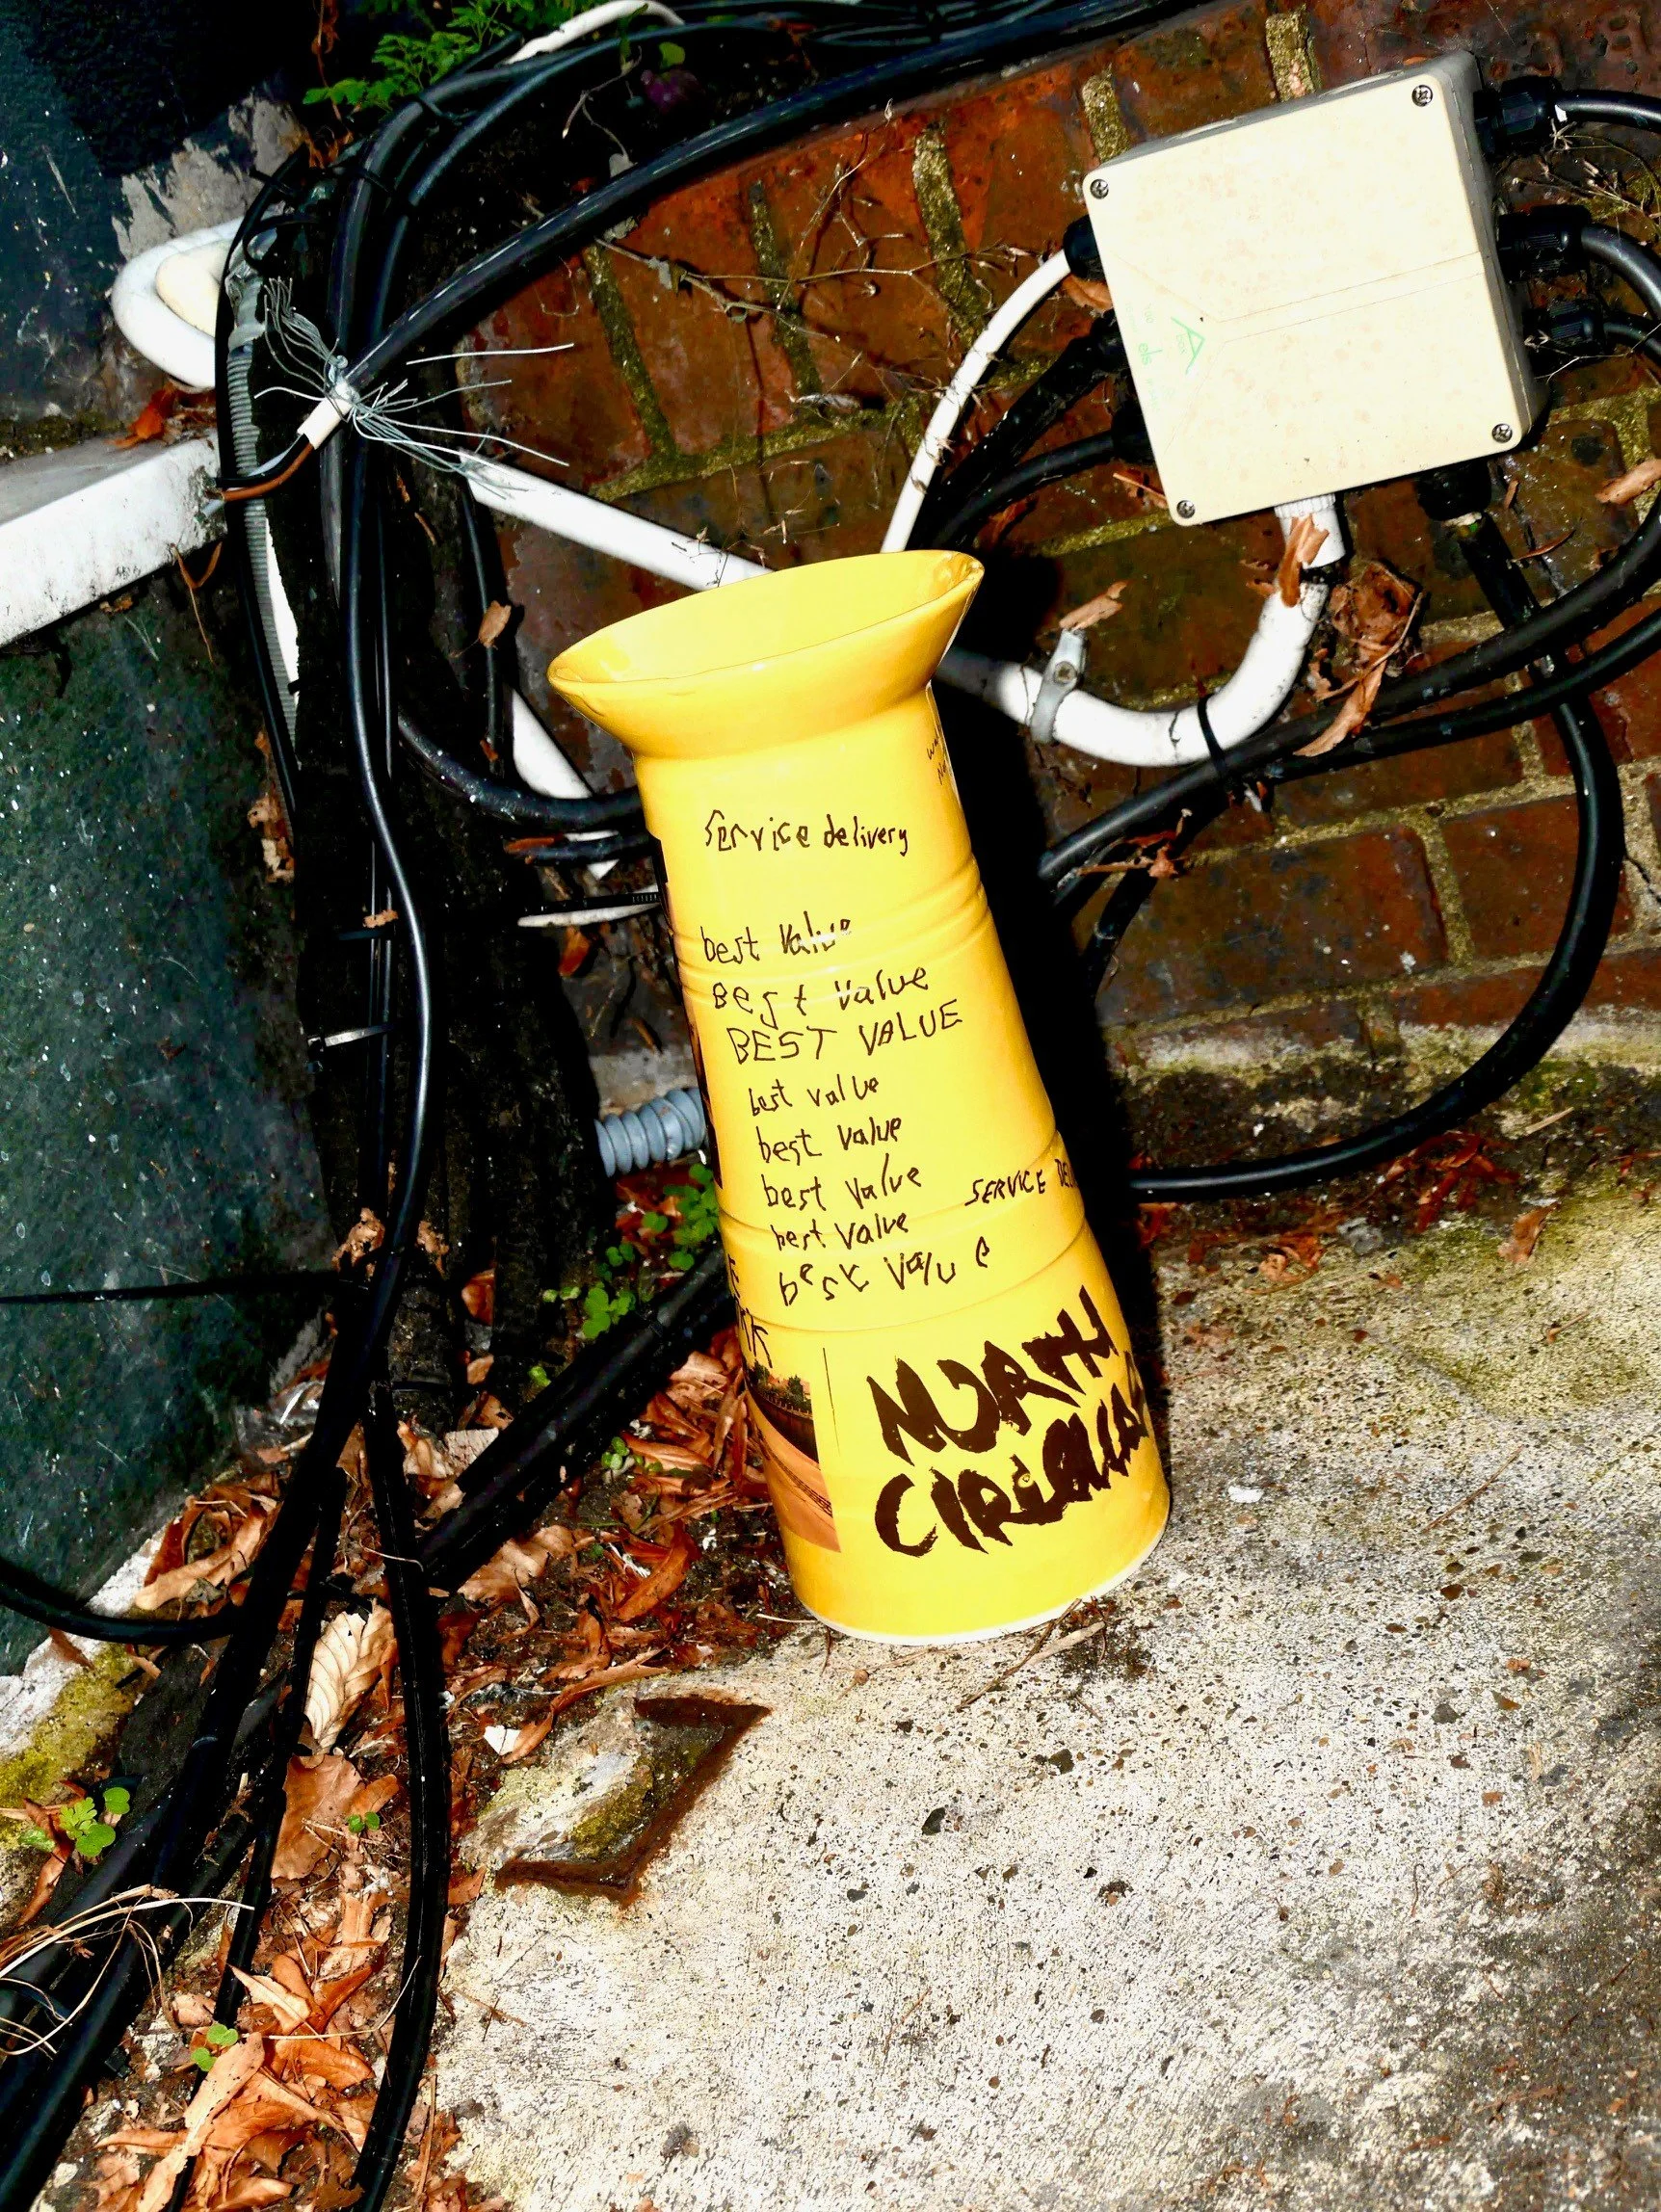 Service delivery
best value
Best value
BEST VALUE
best value
best value
best value
best value
best value
SERVICE
NORTH
CIRCULAR